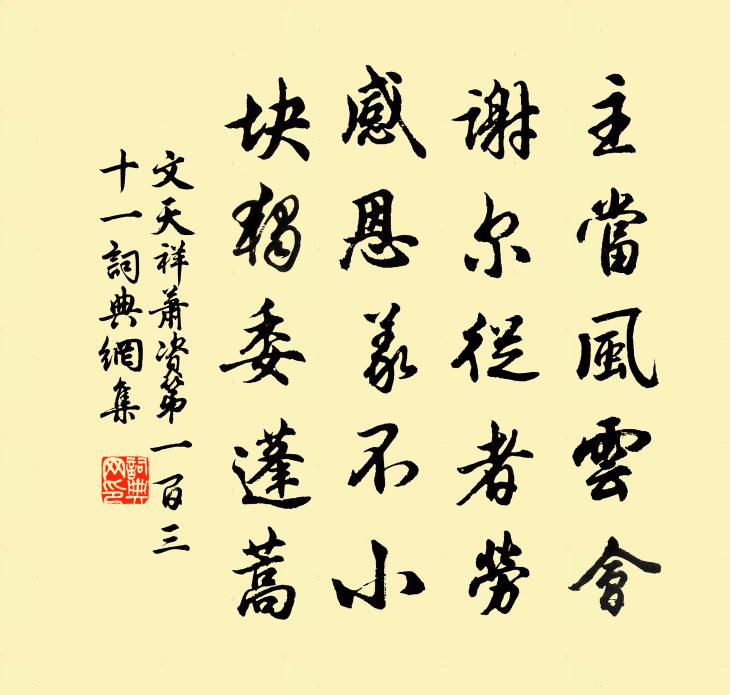 主當風雲會
謝尔從者勞
感恩義不小
块獨委蓬蒿
文天祥蕭資第一百三
十一詞典網集
詞典
网印